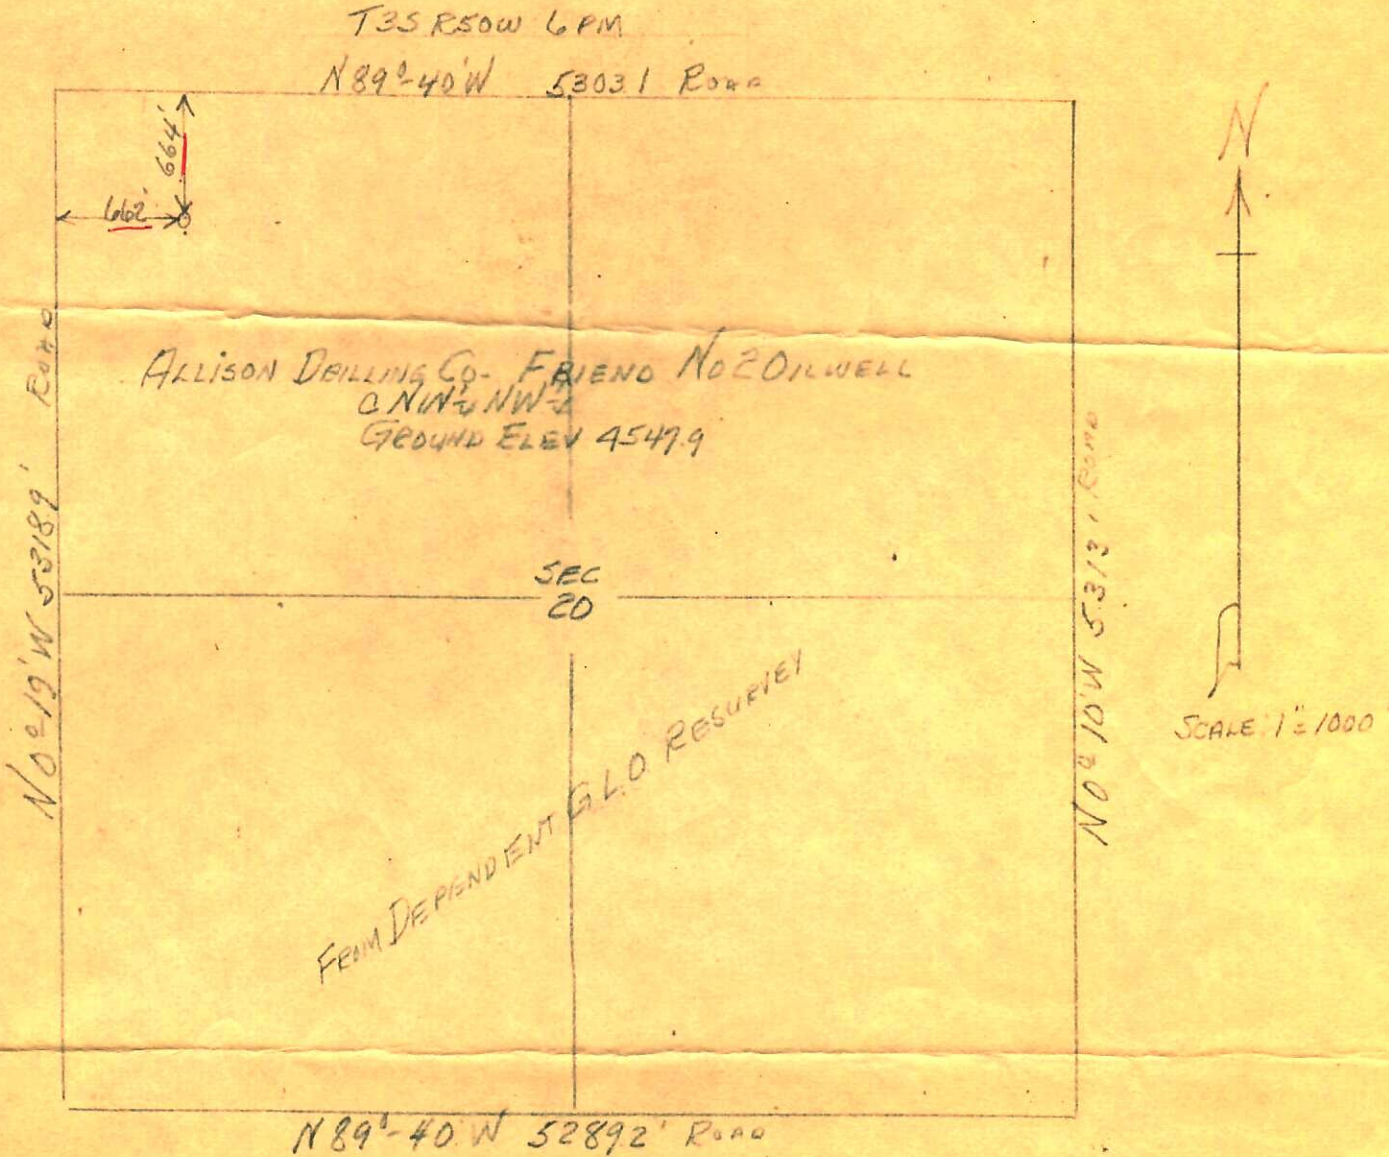 T3S R50W 6PM
N89°-40'W 5303.1 ROAD
N
664'
662'
ALLISON DRILLING CO- FRIEND NO2 OILWELL
C NW¼ NW¼
GROUND ELEV 4547.9
N0°19'W 5318.9' ROAD
N0°10'W 5313' ROAD
SEC
20
SCALE 1"=1000
FROM DEPENDENT G.L.O. RESURVEY
N89°-40'W 5289.2' ROAD